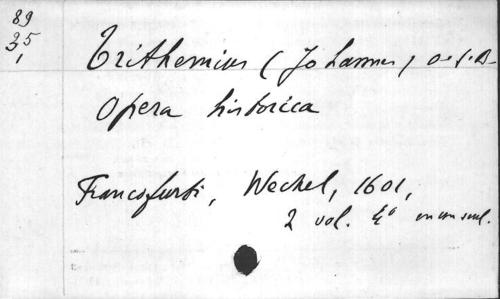 89
35,
Trithemius (Johannes) O.S.B.
Opera historica
Francofurti, Wechel, 1601,
2 vol. 4°